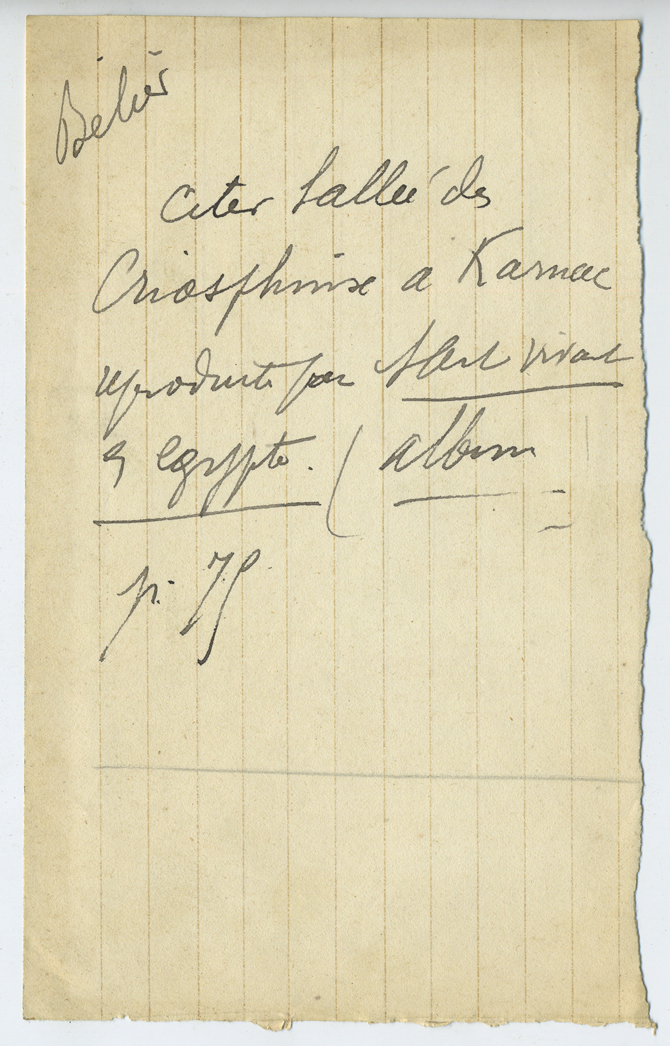 Bélier
Citer l'allée des
Criosphinx a Karnac
reproduite par l'Art vivant
Egypte. ( album
p. 75